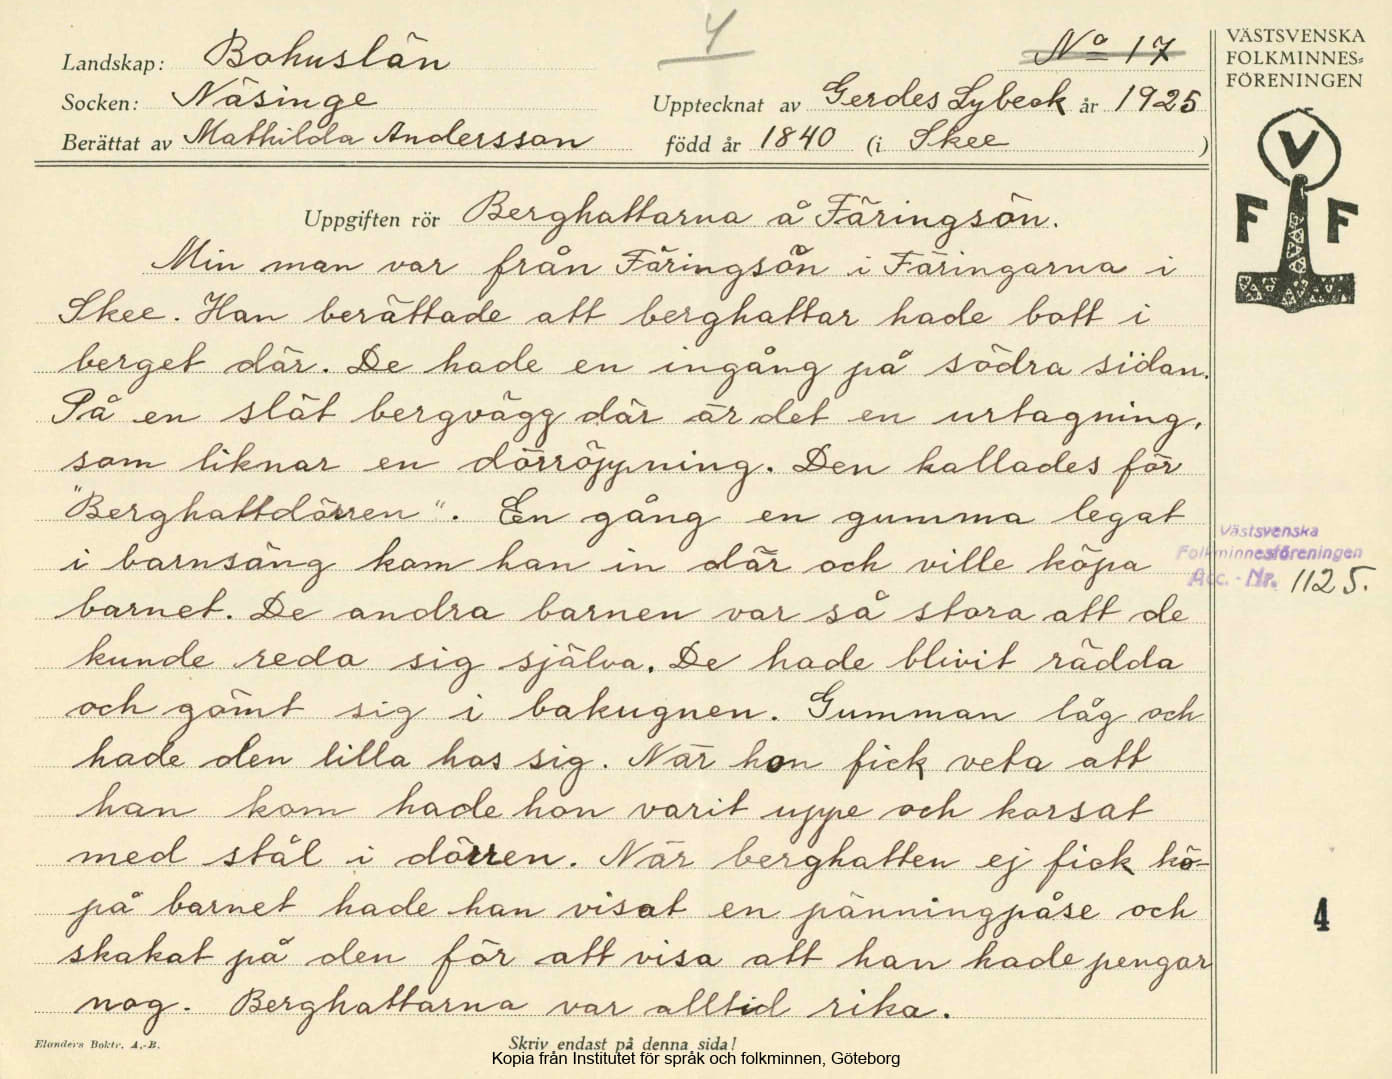 4
Nº 17
Landskap: Bohuslän
Socken: Näsinge
Upptecknat av Gerdes Lybeck år 1925
Berättat av Mathilda Andersson
född år 1840 (i Skee )
VÄSTSVENSKA
FOLKMINNES=
FÖRENINGEN
V
F F
Uppgiften rör Berghattarna å Färingsön.
Min man var från Färingsön i Färingarna i
Skee. Han berättade att berghattar hade bott i
berget där. De hade en ingång på södra sidan.
På en slät bergvägg där är det en urtagning,
som liknar en dörröppning. Den kallades för
"Berghattdörren". En gång en gumma legat
i barnsäng kom han in där och ville köpa
barnet. De andra barnen var så stora att de
kunde reda sig själva. De hade blivit rädda
och gömt sig i bakugnen. Gumman låg och
hade den lilla hos sig. När hon fick veta att
han kom hade hon varit uppe och korsat
med stål i dörren. När berghatten ej fick kö-
pa barnet hade han visat en pänningpåse och
skakat på den för att visa att han hade pengar
nog. Berghattarna var alltid rika.
Västsvenska
Folkminnesföreningen
Acc. - Nr. 1125.
4
Elanders Boktr. A.-B.
Skriv endast på denna sida!
Kopia från Institutet för språk och folkminnen, Göteborg